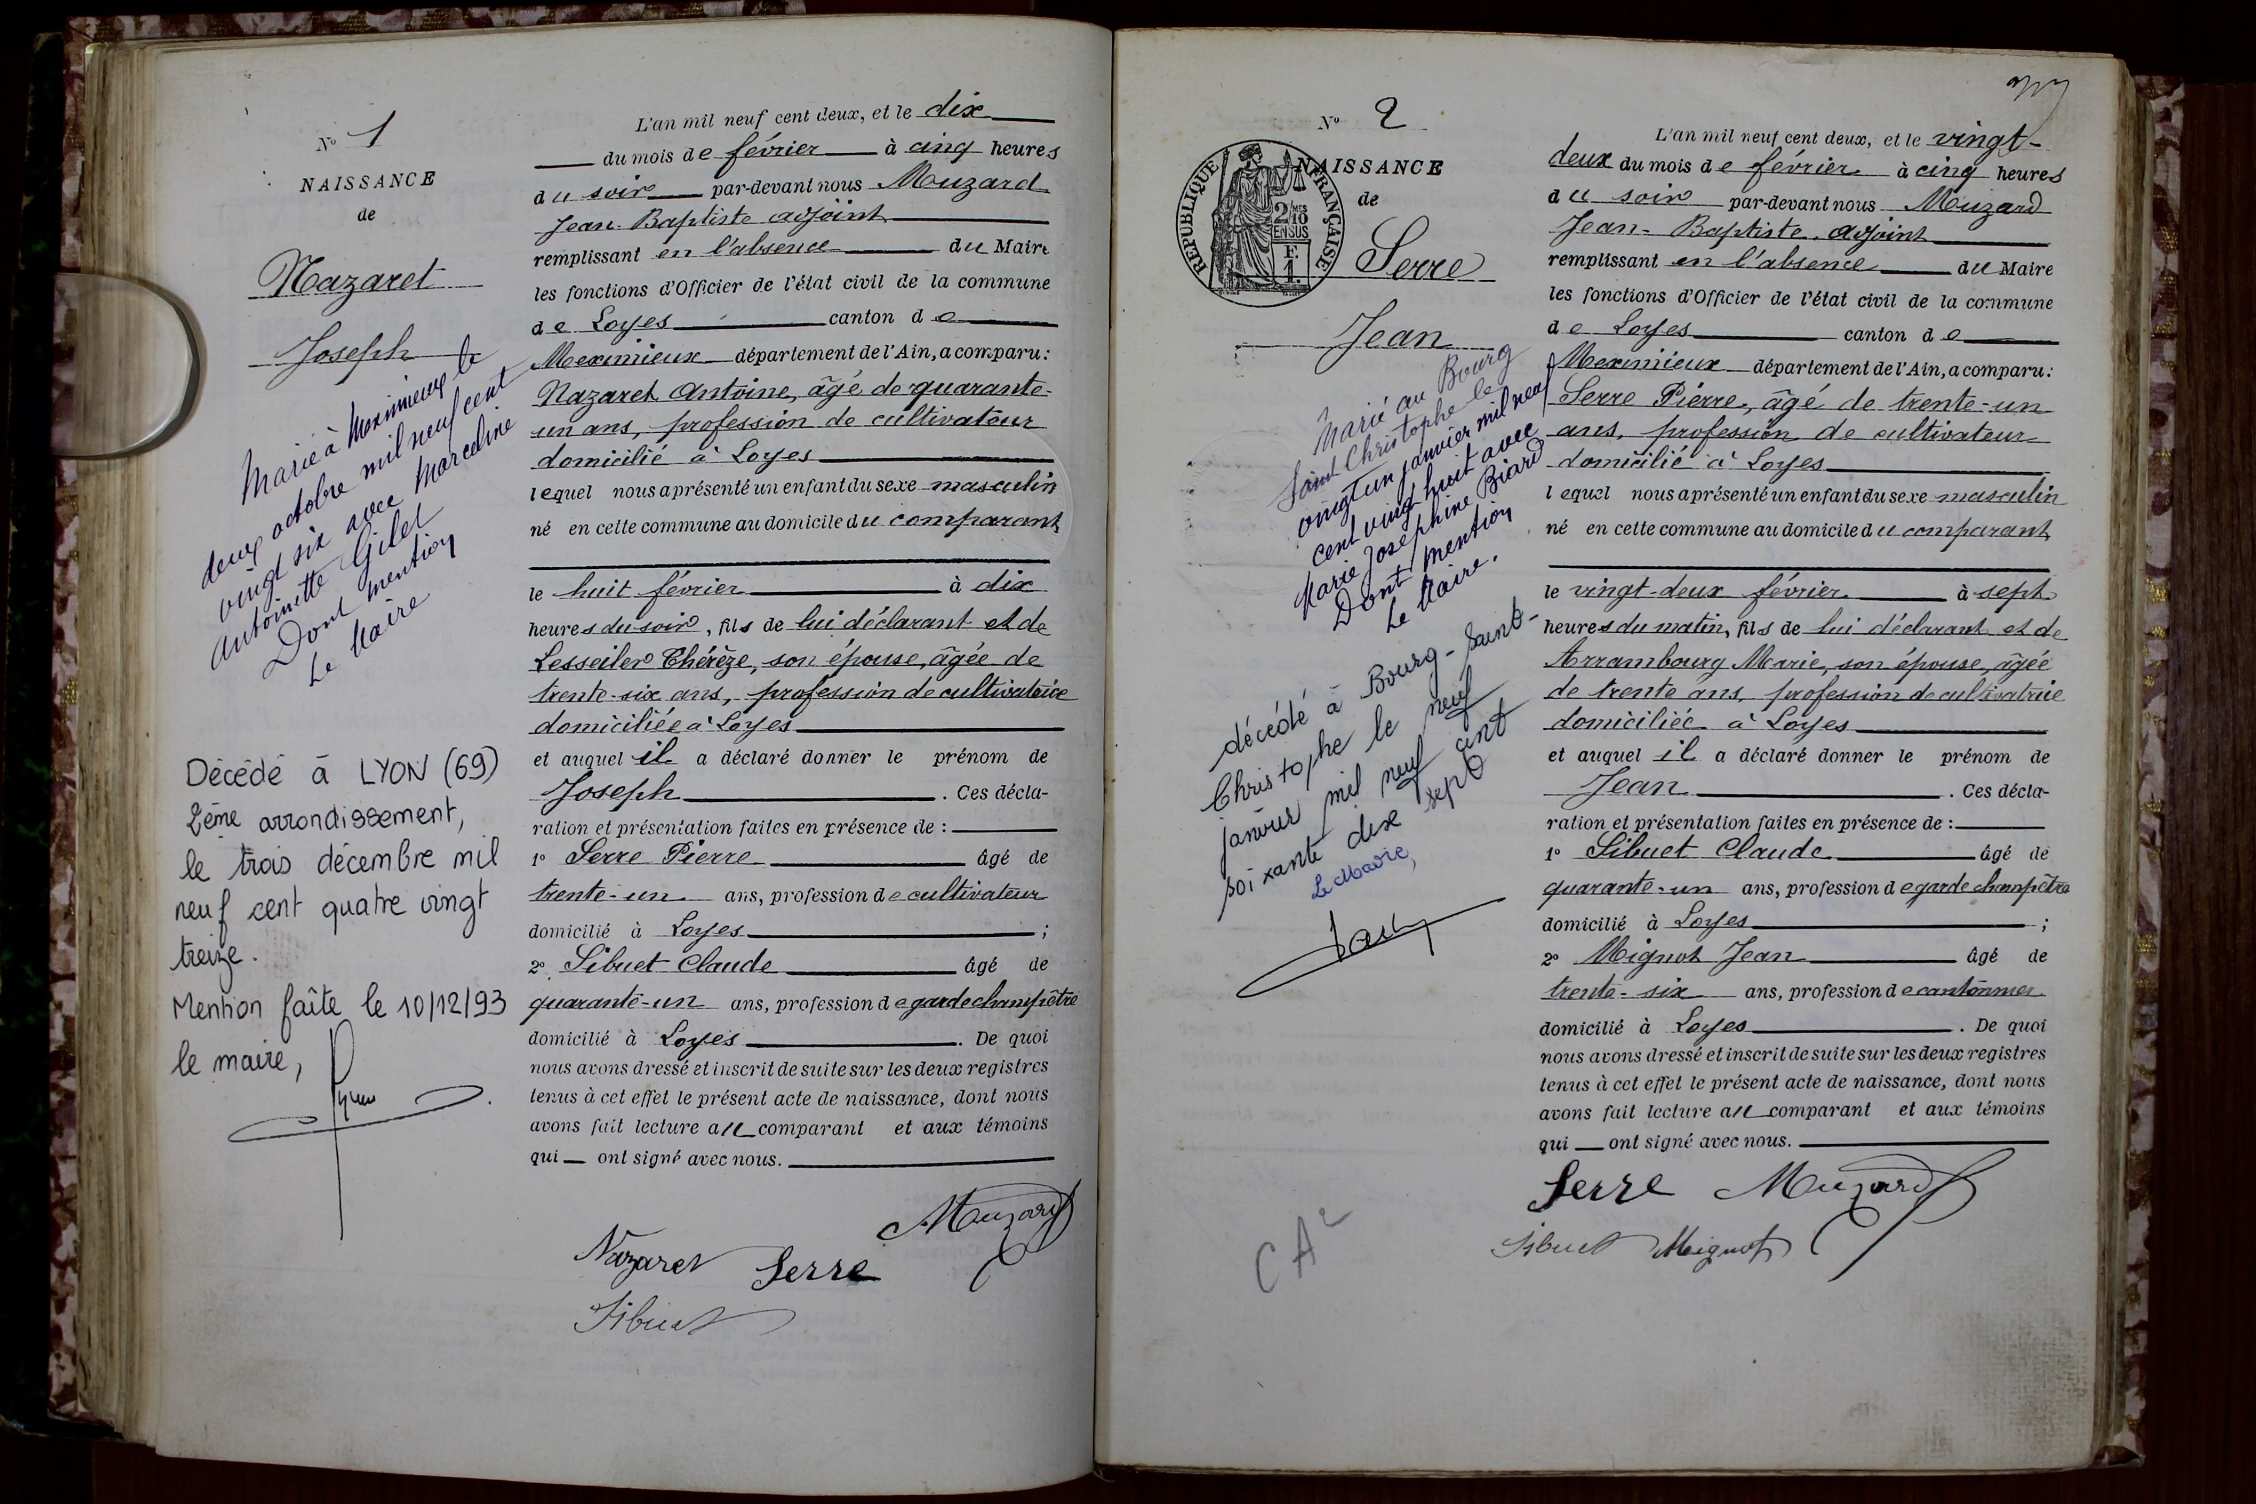 N° 1
NAISSANCE
de
Nazaret
Joseph
Marié à Meximieux le
deux octobre mil neuf cent
vingt six avec Marceline
Antoinette Gilet
Dont mention
Le Maire
Décédé à LYON (69)
2ème arrondissement,
le trois décembre mil
neuf cent quatre vingt
treize.
Mention faîte le 10/12/93
le maire,
L'an mil neuf cent deux, et le dix
du mois de février à cinq heures
du soir par-devant nous Muzard
Jean-Baptiste adjoint
remplissant en l'absence du Maire
les fonctions d'Officier de l'état civil de la commune
de Loyes canton de
Meximieux département de l'Ain, a comparu:
Nazaret Antoine, âgé de quarante-
un ans, profession de cultivateur
domicilié à Loyes
lequel nous a présenté un enfant du sexe masculin
né en cette commune au domicile du comparant
le huit février à dix
heures du soir, fils de lui déclarant et de
Lesseiler Thérèze, son épouse, âgée de
trente-six ans, profession de cultivatrice
domiciliée à Loyes
et auquel il a déclaré donner le prénom de
Joseph. Ces décla-
ration et présentation faites en présence de :
1° Serre Pierre âgé de
trente-un ans, profession de cultivateur
domicilié à Loyes ;
2° Sibuet Claude âgé de
quarante-un ans, profession de garde champêtre
domicilié à Loyes. De quoi
nous avons dressé et inscrit de suite sur les deux registres
tenus à cet effet le présent acte de naissance, dont nous
avons fait lecture au comparant et aux témoins
qui ont signé avec nous.
Muzard
Nazaret Serre
Sibuet
N° 2
NAISSANCE
de
RÉPUBLIQUE FRANÇAISE
2/MES 10
EN SUS
F.
1
Serre
Jean
Marié au Bourg
Saint Christophe le
vingt un janvier mil neuf
cent vingt huit avec
Marie Joséphine Biard
Dont mention
Le Maire.
décédé à Bourg-Saint-
Christophe le neuf
janvier mil neuf cent
soixante dix sept
Le Maire,
CA2
L'an mil neuf cent deux, et le vingt-
deux du mois de février à cinq heures
du soir par-devant nous Muzard
Jean-Baptiste, adjoint
remplissant en l'absence du Maire
les fonctions d'Officier de l'état civil de la commune
de Loyes canton de
Meximieux département de l'Ain, a comparu:
Serre Pierre, âgé de trente-un
ans, profession de cultivateur
domicilié à Loyes
lequel nous a présenté un enfant du sexe masculin
né en cette commune au domicile du comparant
le vingt-deux février à sept
heures du matin, fils de lui déclarant et de
Arrambourg Marie, son épouse, âgée
de trente ans, profession de cultivatrice
domiciliée à Loyes
et auquel il a déclaré donner le prénom de
Jean. Ces décla-
ration et présentation faites en présence de :
1° Sibuet Claude âgé de
quarante-un ans, profession de garde champêtre
domicilié à Loyes ;
2° Mignot Jean âgé de
trente-six ans, profession de cantonnier
domicilié à Loyes. De quoi
nous avons dressé et inscrit de suite sur les deux registres
tenus à cet effet le présent acte de naissance, dont nous
avons fait lecture au comparant et aux témoins
qui ont signé avec nous.
Serre Muzard
Sibuet Mignot